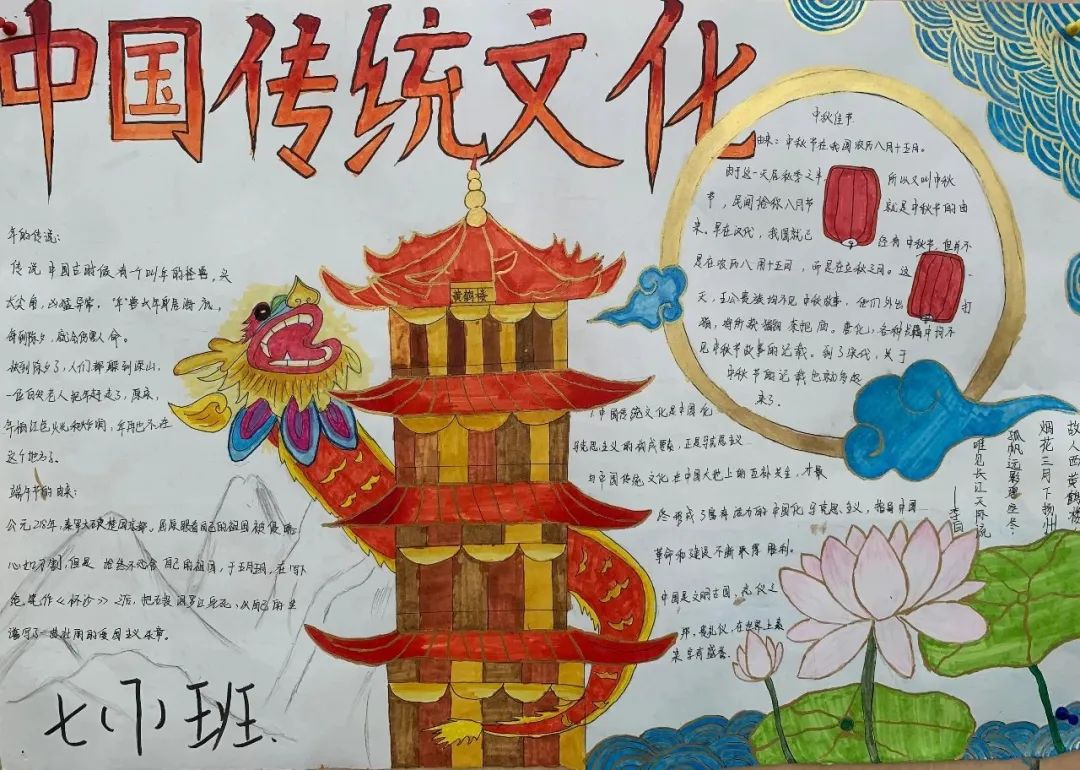 中国传统文化
年的传说：
传说中国古时候有一个叫年的怪兽，头
大尖角，凶猛异常，年兽长年居海底，
每到除夕，就会伤害人命。
快到除夕了，人们都躲到深山，
一位白发老人把年赶走了，原来，
年怕红色火光和炸响，年再也不在
这个地方了。
端午节的由来：
公元278年，秦军攻破楚国京都，屈原眼看自己的祖国被侵略
心如刀割，但是始终不忍舍自己的祖国，于五月五日，在写下
绝笔作《怀沙》之后，抱石投汨罗江身死，以自己的生
谱写了一曲壮丽的爱国主义乐章。
七(1)班
黄鹤楼
中秋佳节
由来：中秋节在我国农历八月十五日。
由于这一天居秋季之半 所以又叫中秋
节，民间俗称八月节 就是中秋节的由
来。早在汉代，我国就已 经有中秋节，但并不
是在农历八月十五日，而是在立秋之日。这
天，王公贵族均不见中秋故事，他们外出 打
猎，将所获 祭祀
见中秋节故事的记载。到了宋代，关于
中秋节的记载也就多起
来了。
中国传统文化是中国化
马克思主义的构成要素，正是马克思主义
与中国传统文化在中国大地上的互补共生，才最
终形成了富有活力的中国化马克思主义，指导中国
革命和建设不断取得胜利。
中国是文明古国，礼仪之
邦，重礼仪，在世界上素
来享有盛誉。
故人西 黄鹤楼
烟花三月下扬州
孤帆远影碧空尽
唯见长江天际流
——李白